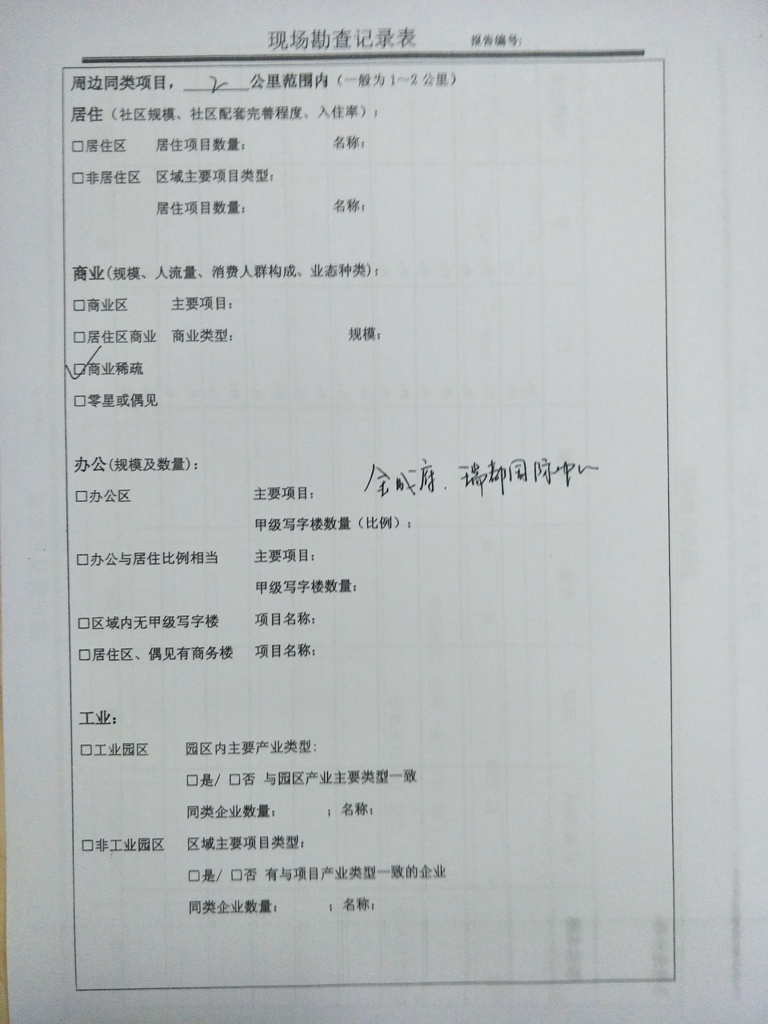 现场勘查记录表 报告编号:
周边同类项目， 2 公里范围内（一般为 1～2 公里）
居住（社区规模、社区配套完善程度、入住率）：
□居住区 居住项目数量： 名称：
□非居住区 区域主要项目类型：
居住项目数量： 名称：
商业(规模、人流量、消费人群构成、业态种类)：
□商业区 主要项目：
□居住区商业 商业类型： 规模：
☑商业稀疏
□零星或偶见
办公(规模及数量)：
□办公区 主要项目： 金成府、瑞都国际中心
甲级写字楼数量（比例）：
□办公与居住比例相当 主要项目：
甲级写字楼数量：
□区域内无甲级写字楼 项目名称：
□居住区、偶见有商务楼 项目名称：
工业：
□工业园区 园区内主要产业类型:
□是/ □否 与园区产业主要类型一致
同类企业数量： ；名称：
□非工业园区 区域主要项目类型：
□是/ □否 有与项目产业类型一致的企业
同类企业数量： ；名称：